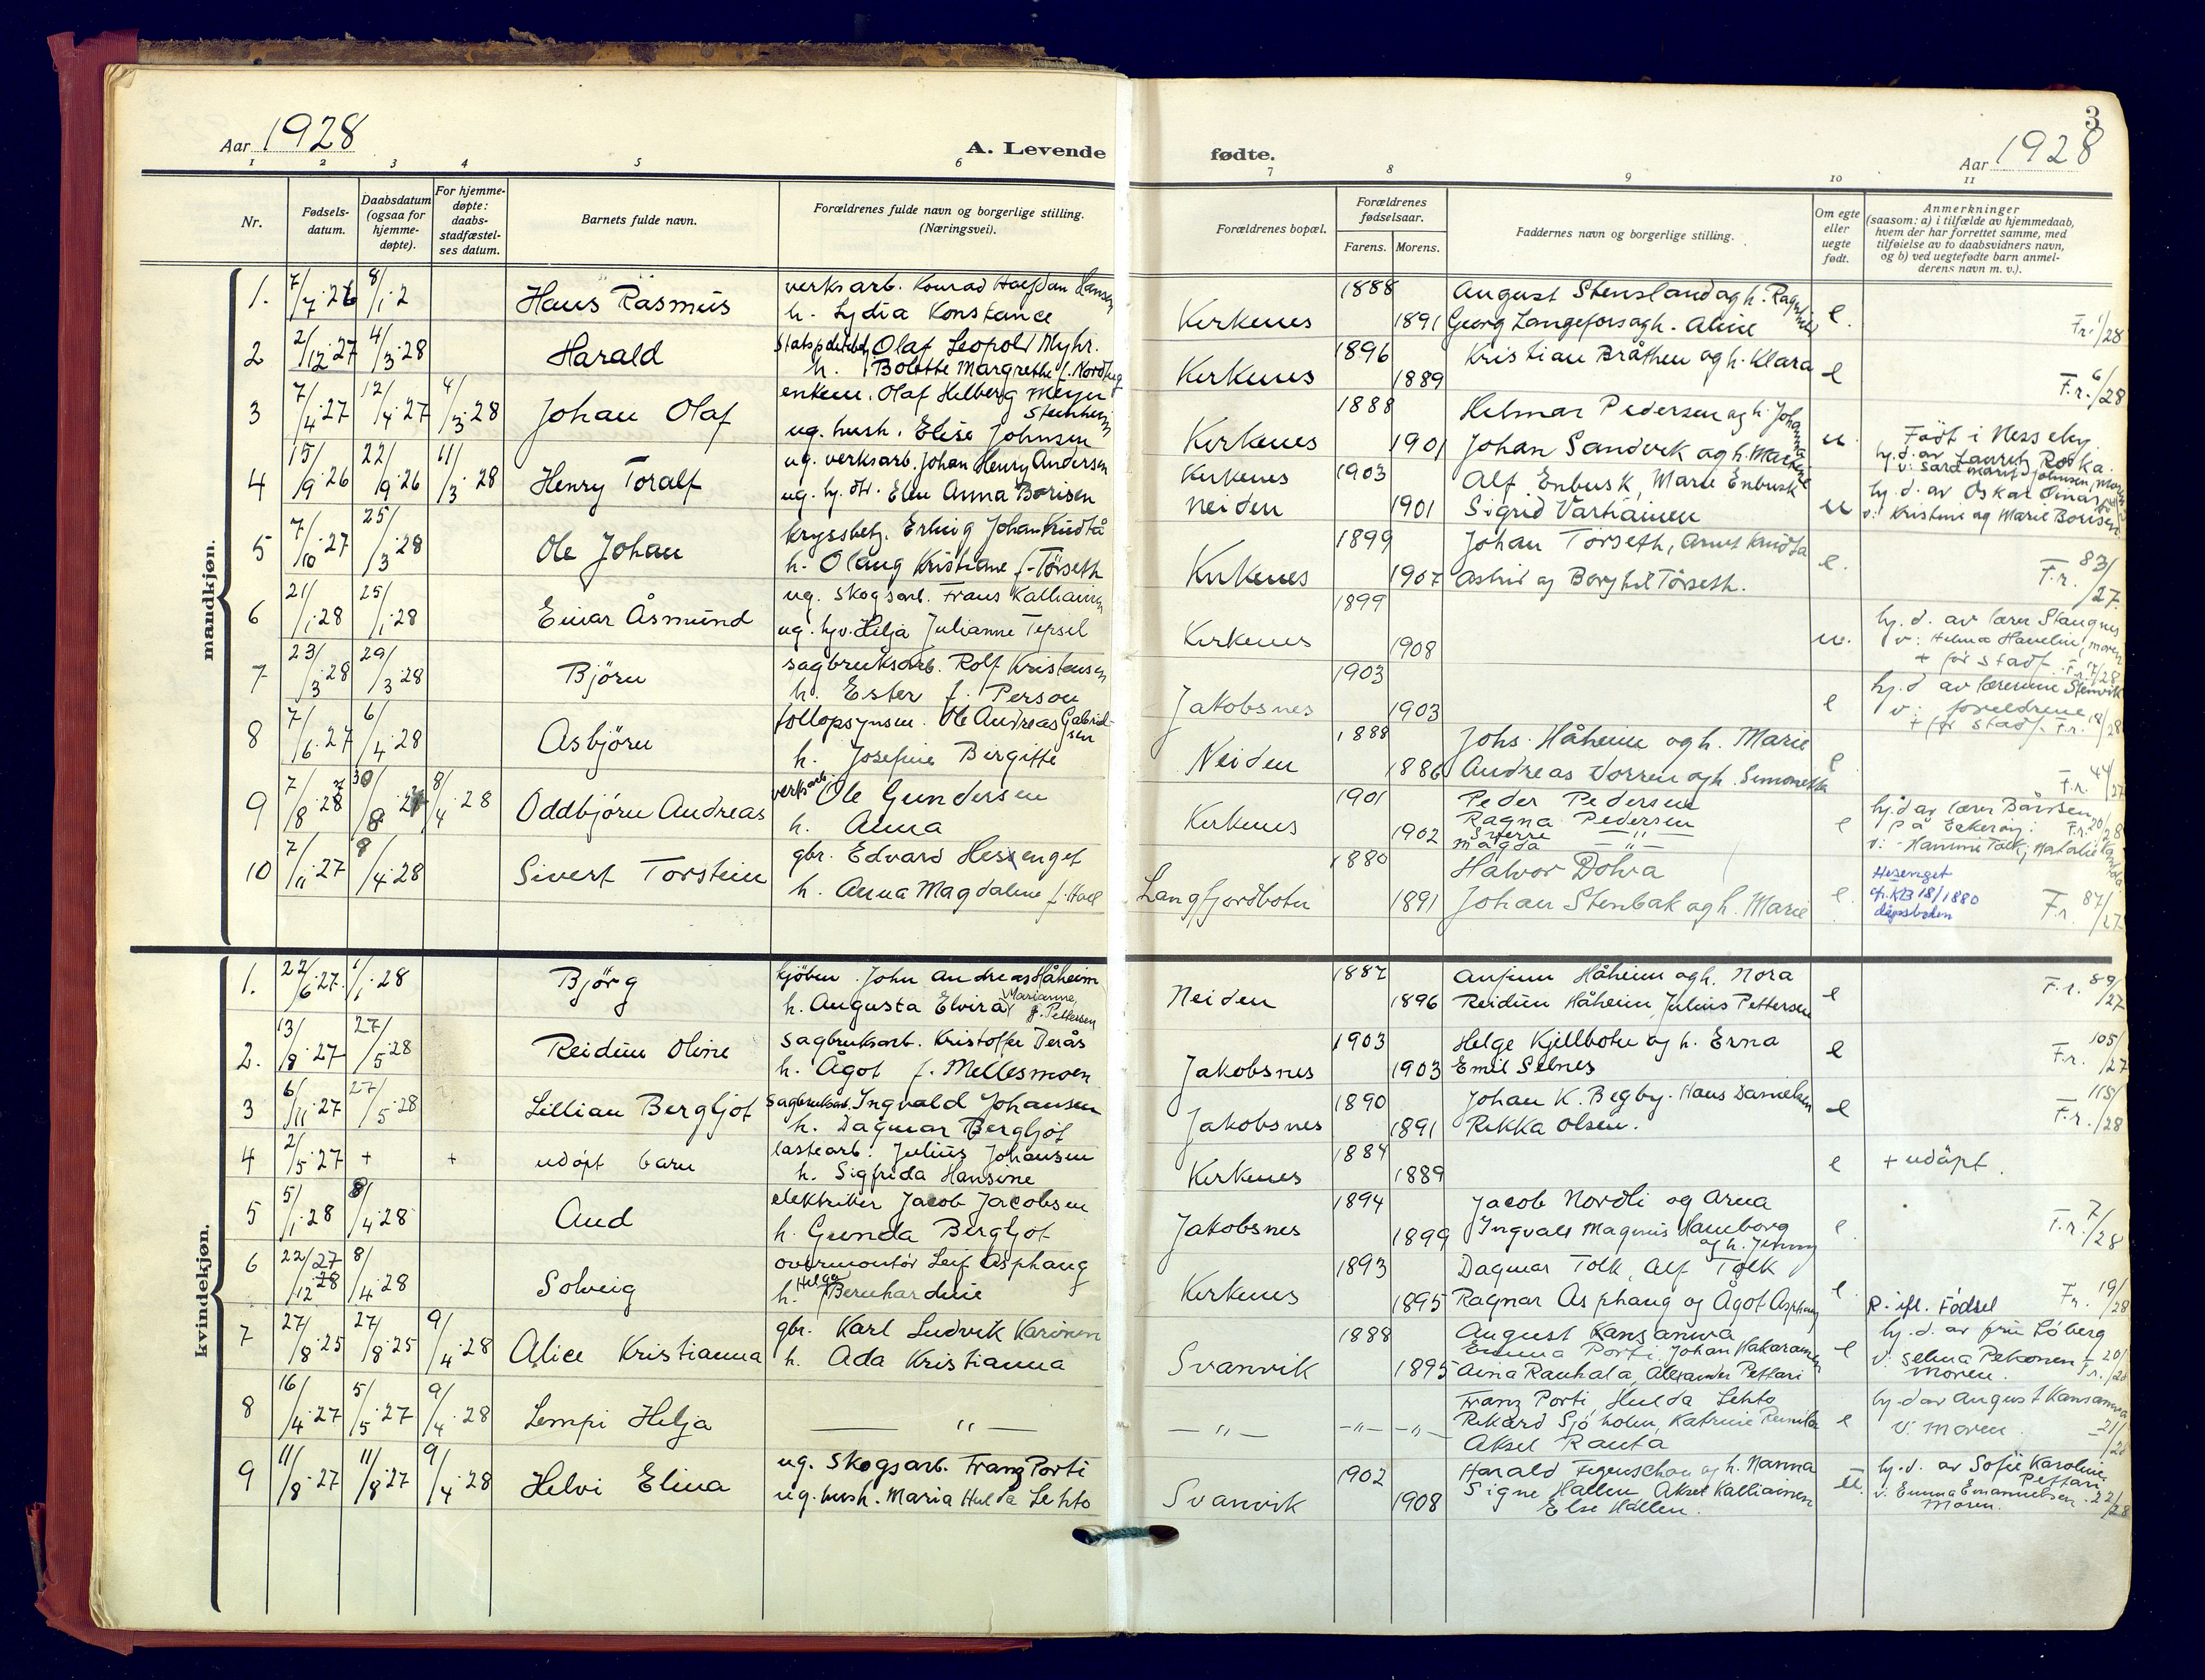 3
Aar 1928
A. Levende
fødte.
Aar 1928
1 2 3 4 5 6 7 8 9 10 11
Nr.
Fødsels-
datum.
Daabsdatum
(ogsaa for
hjemme-
døpte).
For hjemme-
døpte:
daabs-
stadfæstel-
ses datum.
Barnets fulde navn.
Forældrenes fulde navn og borgerlige stilling.
(Næringsvei).
Forældrenes bopæl.
Forældrenes
fødselsaar.
Farens. Morens.
Faddernes navn og borgerlige stilling.
Om egte
eller
uegte
født.
Anmerkninger
(saasom: a) i tilfælde av hjemmedaab,
hvem der har forrettet samme, med
tilføielse av to daabsvidners navn,
og b) ved uegtefødte barn anmel-
derens navn m. v.).
mandkjøn.
1. 7/7 26 8/1 2 Hans Rasmus
verksarb. Konrad Halfdan Hansen
h. Lydia Konstance
Kirkenes 1888 1891
August Stensland og h. Ragnhild
Georg Langefors og h. Aline
e.
F.r. 1/28
2 2/12 27 4/3 28 Harald
Olaf Leopold Myhr.
h. Bolette Margrethe f. Nordhug
Kirkenes 1896 1889
Kristian Bråthen og h. Klara
e
F.r. 6/28
3 7/4 27 12/4 27 4/3 28 Johan Olaf
enkem. Olaf Helberg Meyer
Steinheim
ug. hush. Elise Johnsen
Kirkenes 1888 1901
Helmar Pedersen og h. Johanna
Johan Sandvik og h. Mathilde
u.
Født i Nesseby.
hj. d. av Lauritz Roska.
v: Sara Marit Johnsen, moren
4 15/9 26 22/9 26 11/3 28 Henry Toralf
ug. verksarb. Johan Henry Andersen
ug. hj. dtr. Elen Anna Borisen
Kirkenes
Neiden 1903 1901
Alf Enbusk, Marie Enbusk
Sigrid Vartiainen
u
hj. d. av Oskar Oinas
v: Kristine og Marie Borisen
5 7/10 27 25/3 28 Ole Johan
kryssbetj. Erling Johan Knudtå
h. Olaug Kristiane f. Törseth
Kirkenes 1899 1907
Johan Törseth, Arnt Knudtå
Astrid og Borghil Törseth.
e.
F.r. 83/27
6 21/1 28 25/1 28 Einar Åsmund
ug. skogsarb. Frans Kalliainen
ug. hjv. Hilja Julianne Tepsel
Kirkenes 1899 1908
u.
hj. d. av lærer Stangnes
v: Helma Havelin, moren
+ før stadf. F.r. 17/28
7 23/3 28 29/3 28 Björn
sagbruksarb. Rolf Kristensen
h. Ester f. Person
Jakobsnes 1903 1903
e
hj. d av lærerinne Stenvik
v: foreldrene
+ før stadf. F.r. 18/28
8 7/6 27 6/4 28 Asbjörn
follopsynsm. Ole Andreas Gabriel-
sen
h. Josefine Birgitte
Neiden 1888 1886
Johs. Håheim og h. Marie
Andreas Vorren og h. Simonetta
e
F.r. 44/27
9 7/8 28 30/8 27 8/4 28 Oddbjörn Andreas
verksarb. Ole Gundersen
h. Anna
Kirkenes 1901 1902
Peder Pedersen
Ragna Pedersen
Sverre — " —
Magda — " —
e
hj. d av lærer Bårdsen
på Ekkeröy. F.r. 20/28
10 7/11 27 8/4 28 Sivert Torstein
gbr. Edvard Hesenget
h. Anna Magdalene f. Hall
Langfjordbotn 1880 1891
Halvor Dolva
Johan Stenbak og h. Marie
e.
Hesenget
cfr. KB 18/1880
dåpsboken
F.r. 87/27
kvindekjøn.
1. 22/6 27 1/1 28 Björg
kjöbm. John Andreas Håheim
h. Augusta Elvira Marianne,
f. Pettersen
Neiden 1887 1896
Anfinn Håheim og h. Nora
Reidun Håheim, Julius Pettersen
e
F.r. 89/27
2. 13/8 27 27/5 28 Reidun Oline
sagbruksarb. Kristoffer Derås
h. Ågot f. Mellesmoen
Jakobsnes 1903 1903
Helge Kjellbotn og h. Erna
Emil Selnes
e
F.r. 105/27
3 6/11 27 27/5 28 Lillian Bergljot
sagbruksarb. Ingvald Johansen
h. Dagmar Bergljot
Jakobsnes 1890 1891
Johan K. Begby. Hans Danielsen
Rikka Olsen.
e
F.r. 115/28
4 2/5 27 + + udöpt barn
lastearb. Julius Johansen
h. Sigfrida Hansine
Kirkenes 1884 1889
e
+ udöpt.
5 5/1 28 8/4 28 Aud
elektriker Jacob Jacobsen
h. Gunda Bergljot
Jakobsnes 1894 1899
Jacob Nordli og Arna
Ingvald Magnus Hamborg
og h. Jenny
e
F.r. 7/28
6 22/12 27 28 8/4 28 Solveig
overmontör Leif Asphaug
h. Helga Bernhardine
Kirkenes 1893 1895
Dagmar Tolk, Alf Tolk
Ragnar Asphaug og Ågot Asphaug
e
R. ifl. Fødsel F.r. 19/28
7 27/8 25 27/8 25 9/4 28 Alice Kristianna
gbr. Karl Ludvik Karinen
h. Ada Kristianna
Svanvik 1888 1895
August Kansaniva
Emma Porti, Johan Hakarainen
Aina Rauhala, Alexander Pettari
e
hj. d. av fru Löberg
v: Selma Pekonen
Moren. F.r. 20/28
8 16/4 27 5/5 27 9/4 28 Lempi Hilja
— " —
— " — — " — — " —
Franz Porti, Hulda Lehto
Rikard Sjöholm, Katrine Remila
Aksel Ranta
e
hj. d av August Kansaniva
v. moren. 21/28
9 11/8 27 11/8 27 9/4 28 Helvi Elina
ug. Skogsarb. Franz Porti
ug. hush. Maria Hulda Lehto
Svanvik 1902 1908
Harald Figenschou og h. Nanna
Signe Hallen, Aksel Kalliainen
Else Hallen.
u.
hj. d. av Sofie Karoline
Pettari
v. Emma Emanuelsen. 22/28
Moren.